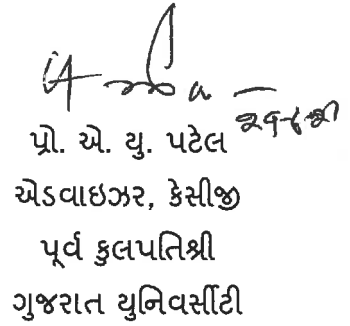 પ્રો. એ. યુ. પટેલ
એડવાઇઝર, કેસીજી
પૂર્વ કુલપતિશ્રી
ગુજરાત યુનિવર્સીટી